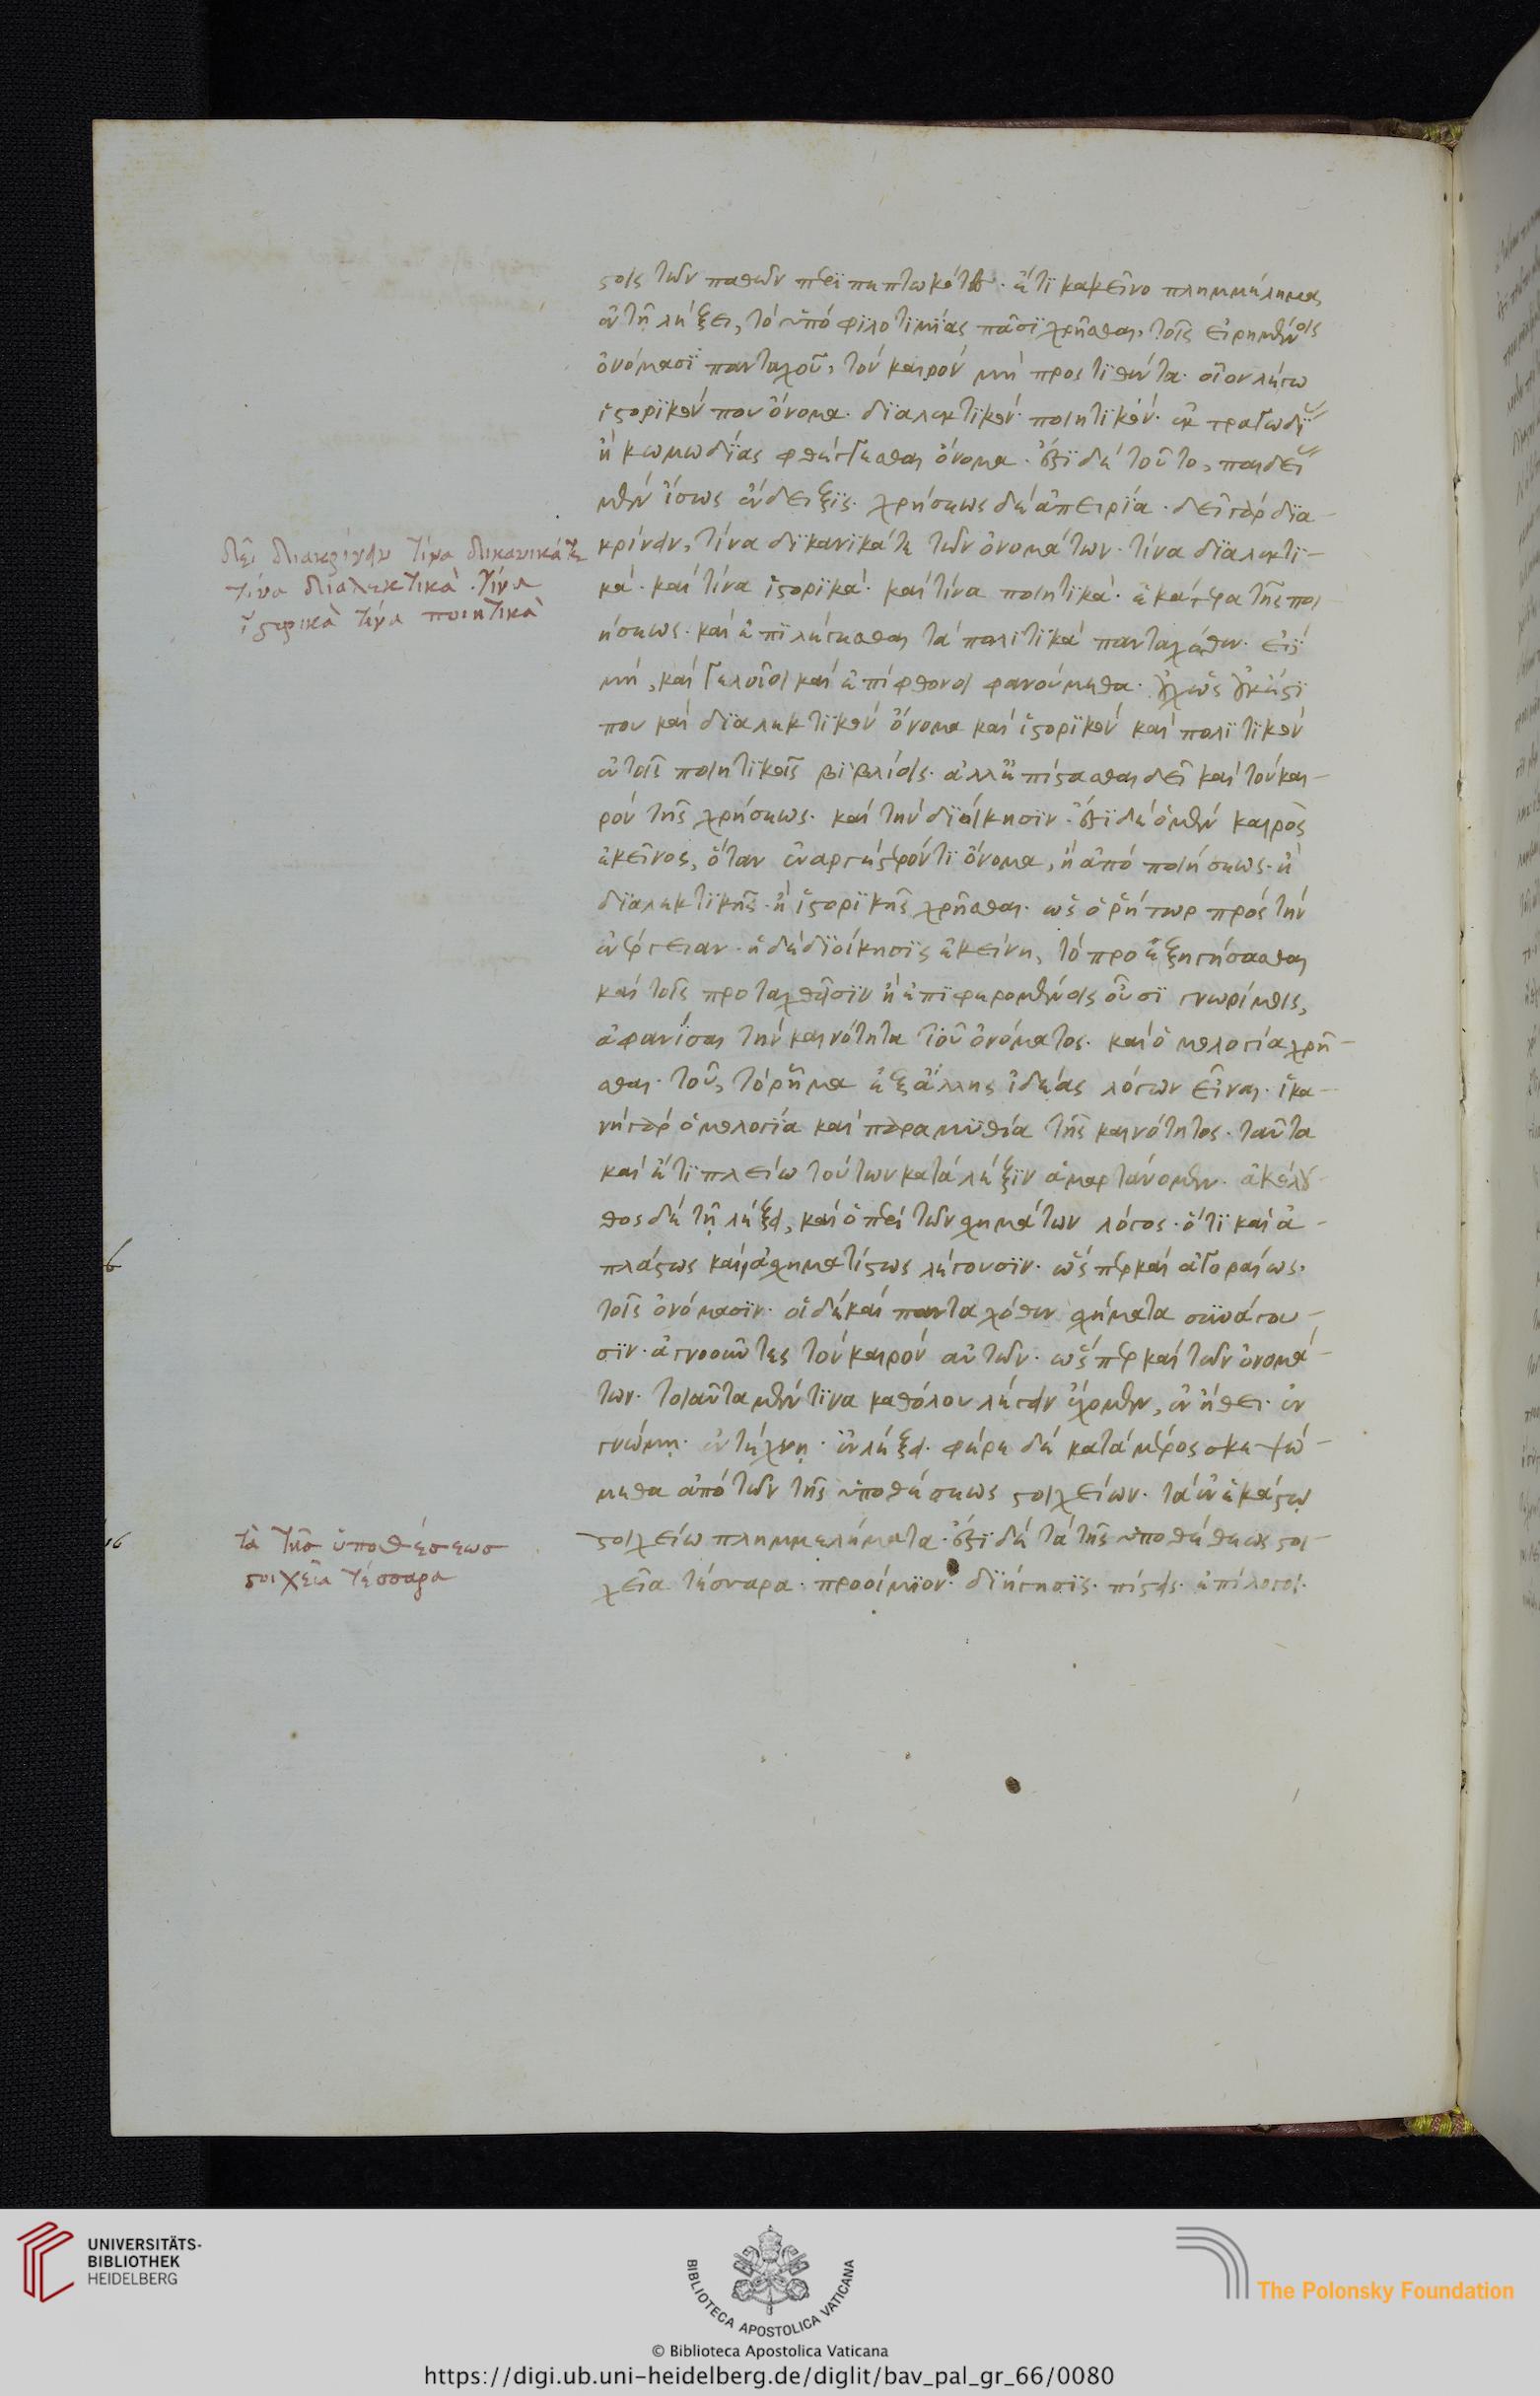 στοις τῶν παθῶν περιπεπτωκότων. ἔτι κακεῖνο πλημμέλημα
ἐν τῇ λέξει, τὸ ὑπὸ φιλοτιμίας πᾶσι χρῆσθαι, τοῖς εἰρημένοις
ὀνόμασι πανταχοῦ, τὸν καιρὸν μὴ προστιθέντα. οἷον λέγω
ἱστορικόν που ὄνομα. διαλεκτικόν. ποιητικόν. ἐκ τραγωδί
ἢ κωμωδίας φθέγγεσθαι ὄνομα. ἔστι δὲ τοῦτο, παιδεί
μὲν ἴσως ἔνδειξις. χρήσεως δὲ ἀπειρία. δεῖ γὰρ δια-
κρίνειν, τίνα δικανικά τε τῶν ὀνομάτων. τίνα διαλεκτι-
κά. καὶ τίνα ἱστορικά. καὶ τίνα ποιητικά. ἑκάτερα τῆς ποι
ήσεως. καὶ ἐπιλέγεσθαι τὰ πολιτικὰ πανταχόθεν. εἰ
μή, καὶ γελοῖοι καὶ ἐπίφθονοι φανούμεθα.
που καὶ διαλεκτικὸν ὄνομα καὶ ἱστορικὸν καὶ πολιτικὸν
ἐν τοῖς ποιητικοῖς βιβλίοις. ἀλλ' ἐπίστασθαι δεῖ καὶ τὸν και-
ρὸν τῆς χρήσεως. καὶ τὴν διοίκησιν. ἔστι δὲ ὁ μὲν καιρὸς
ἐκεῖνος, ὅταν ἐναργέστερόν τι ὄνομα, ἢ ἀπὸ ποιήσεως. ἢ
διαλεκτικῆς. ἢ ἱστορικῆς χρῆσθαι. ὡς ὁ ῥήτωρ πρὸς τὴν
ἐνέργειαν. ἡ δὲ διοίκησις ἐκείνη, τὸ προεξηγήσασθαι
καὶ τοῖς προταχθεῖσιν ἢ ἐπιφερομένοις οὖσι γνωρίμοις,
ἀφανίσαι τὴν καινότητα τοῦ ὀνόματος. καὶ ὁμολογία χρῆ-
σθαι. τοῦ, τὸ ῥῆμα ἐξ ἄλλης ἰδέας λόγων εἶναι. ἱκα-
νὴ γὰρ ὁμολογία καὶ παραμυθία τῆς καινότητος. ταῦτα
καὶ ἔτι πλείω τούτων κατὰ λέξιν ἁμαρτάνομεν. ἀκόλου
θος δὲ τῇ λέξει, καὶ ὁ περὶ τῶν σχημάτων λόγος. ὅτι καὶ ἀ-
πλάστως καὶ ἀσχηματίστως λέγουσιν. ὥσπερ καὶ ἀγοραίως.
τοῖς ὀνόμασιν. οἱ δὲ καὶ πανταχόθεν σχήματα συνάγου-
σιν. ἀγνοοῦντες τὸν καιρὸν αὐτῶν. ὥσπερ καὶ τῶν ὀνομά-
των. τοιαῦτα μέν τινα καθόλου λέγειν ἔχομεν, ἐν ἤθει. ἐν
γνώμῃ. ἐν τέχνῃ. ἐν λέξει. φέρε δὲ κατὰ μέρος σκεψώ-
μεθα ἀπὸ τῶν τῆς ὑποθέσεως στοιχείων. τὰ ἐν ἑκάστῳ
στοιχείω πλημμελήματα. ἔστι δὲ τὰ τῆς ὑποθέθεως στοι-
χεῖα τέσσαρα. προοίμιον. διήγησις. πίστεις. ἐπίλογοι.
δεῖ διακρίνειν τίνα δικανικά τε
τίνα διαλεκτικὰ. τίνα
ἱστορικὰ τίνα ποιητικὰ
τὰ τῆς ὑποθέσεως
στοιχεῖα τέσσαρα
UNIVERSITÄTS-
BIBLIOTHEK
HEIDELBERG
BIBLIOTECA APOSTOLICA VATICANA
The Polonsky Foundation
© Biblioteca Apostolica Vaticana
https://digi.ub.uni-heidelberg.de/diglit/bav_pal_gr_66/0080